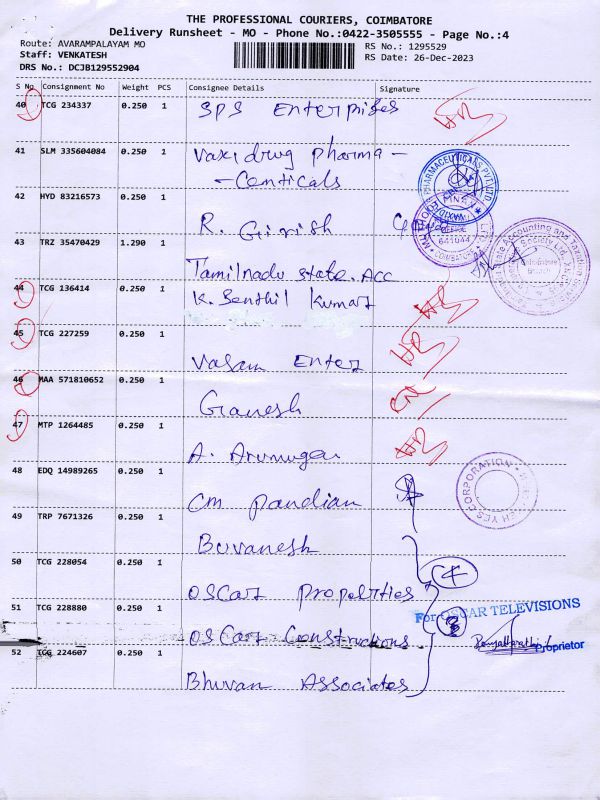 THE PROFESSIONAL COURIERS, COIMBATORE
Delivery Runsheet - MO - Phone No.:0422-3505555 - Page No.:4
Route: AVARAMPALAYAM MO
RS No.: 1295529
Staff: VENKATESH
RS Date: 26-Dec-2023
DRS No.: DCJB129552904
S No Consignment No Weight PCS Consignee Details Signature
40 TCG 234337 0.250 1 SPS Enterprises
41 SLM 335604084 0.250 1 Vaxidrug pharma -
- Cemticals
42 HYD 83216573 0.250 1
R. Girish
43 TRZ 35470429 1.290 1
Tamilnadu state. Acc
44 TCG 136414 0.250 1 K. Senthil Kumar
45 TCG 227259 0.250 1
Vasam Enter
46 MAA 571810652 0.250 1
Ganesh
47 MTP 1264485 0.250 1
A. Arumugam
48 EDQ 14989265 0.250 1
Cm pandian
49 TRP 7671326 0.250 1
Buvanesh
50 TCG 228054 0.250 1
OSCar Properties
51 TCG 228880 0.250 1
For OSCAR TELEVISIONS
OSCar Constructions
Proprietor
52 TCG 224607 0.250 1
Bhuvan Associates